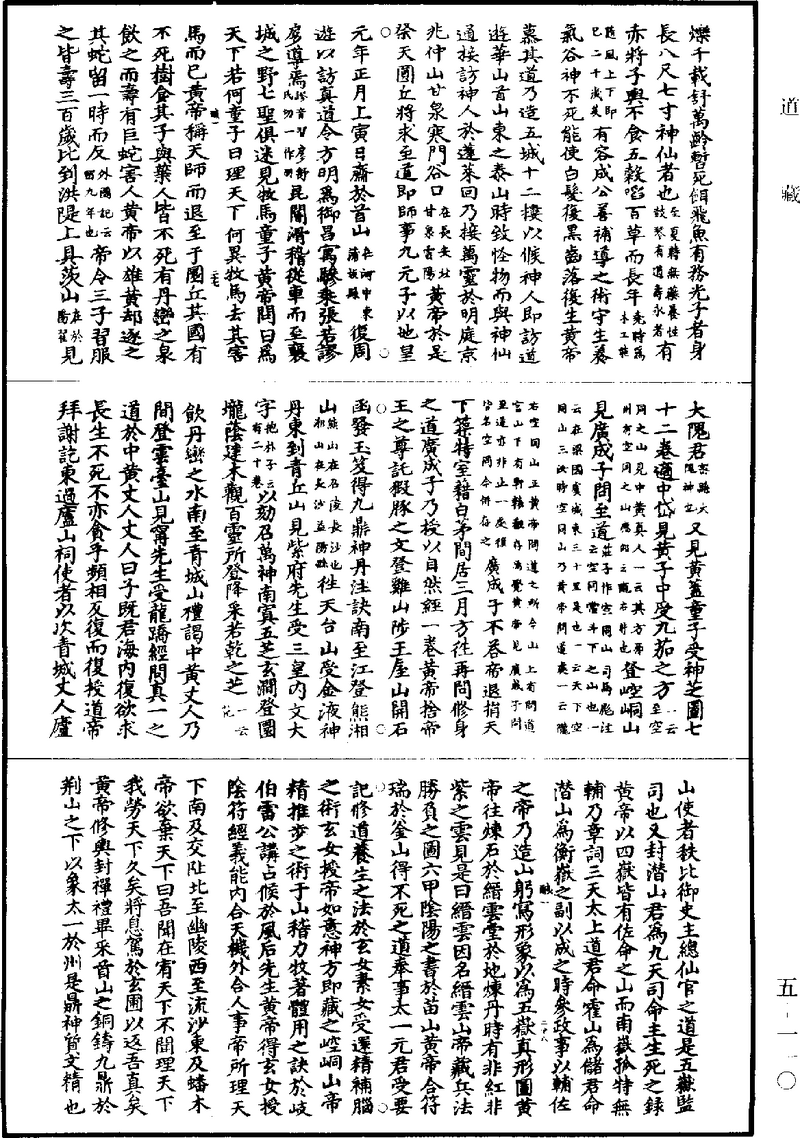 道藏
五-一一〇
爍千載舒萬齡暫死餌飛魚有務光子者身
長八尺七寸神仙者也至夏時無藥養性鼓琴有道壽永者有
赤將子輿不食五穀啗百草而長年堯時爲木工能
隨風上下即已二千歲矣有容成公善補導之術守生養
氣谷神不死能使白髮復黑齒落復生黃帝
慕其道乃造五城十二樓以候神人即訪道
遊華山首山東之泰山時致怪物而與神仙
通接訪神人於蓬萊回乃接萬靈於明庭京
兆仲山甘泉寒門谷口在長安北甘泉雲陽黃帝於是
祭天圜丘將求至道即師事九元子以地皇
元年正月上寅日齋於首山在河中東蒲坂縣復周
遊以訪真道令方明爲御昌寓驂乘張若謵
廖導焉昆閽滑稽從車而至襄
城之野七聖俱迷見牧馬童子黃帝問曰爲
天下若何童子曰理天下何異牧馬去其害
馬而已黃帝稱天師而退至于圜丘其國有
不死樹食其子與葉人皆不死有丹巒之泉
飲之而壽有巨蛇害人黃帝以雄黃却逐之
其蛇留一時而反外國記云留九年也帝令三子習服
之皆壽三百歲北到洪隄上具茨山在於陽翟見
大隗君又見黃蓋童子受神芝圖七
十二卷適中岱見黃子中受九茄之方
登崆峒山
見廣成子問至道
廣成子不荅帝退捐天
下築特室藉白茅間居三月方往再問修身
之道廣成子乃授以自然經一卷黃帝捨帝
王之尊託猳豚之文登雞山陟王屋山開石
函發玉笈得九鼎神丹注訣南至江登熊湘
山熊山在召陵長沙也湘山在長沙益陽縣往天台山受金液神
丹東到青丘山見紫府先生受三皇內文大
字抱朴子云有二十卷以劾召萬神南寘五芝玄澗登圜
壠蔭建木觀百靈所登降采若乾之芝一云花
飲丹巒之水南至青城山禮謁中黃丈人乃
間登雲臺山見甯先生受龍蹻經問真一之
道於中黃丈人丈人曰子既君海內復欲求
長生不死不亦貪乎頻相反復而復授道帝
拜謝訖東過廬山祠使者以次青城丈人廬
山使者秩比御史主總仙官之道是五嶽監
司也又封潛山君爲九天司命主生死之錄
黃帝以四嶽皆有佐命之山而南嶽孤特無
輔乃章詞三天太上道君命霍山爲儲君命
潛山爲衡嶽之副以成之時參政事以輔佐
之帝乃造山躬寫形象以爲五嶽真形圖黃
帝往煉石於縉雲堂於地煉丹時有非紅非
紫之雲見是曰縉雲因名縉雲山帝藏兵法
勝負之圖六甲陰陽之書於苗山黃帝合符
瑞於釜山得不死之道奉事太一元君受要
記修道養生之法於玄女素女受還精補腦
之術玄女授帝如意神方即藏之崆峒山帝
精推步之術于山稽力牧著體用之訣於岐
伯雷公講占候於風后先生黃帝得玄女授
陰符經義能內合天機外合人事帝所理天
下南及交阯北至幽陵西至流沙東及蟠木
帝欲棄天下曰吾聞在宥天下不聞理天下
我勞天下久矣將息駕於玄圃以返吾真矣
黃帝修輿封禪禮畢采首山之銅鑄九鼎於
荊山之下以象太一於九州是鼎神質文精也